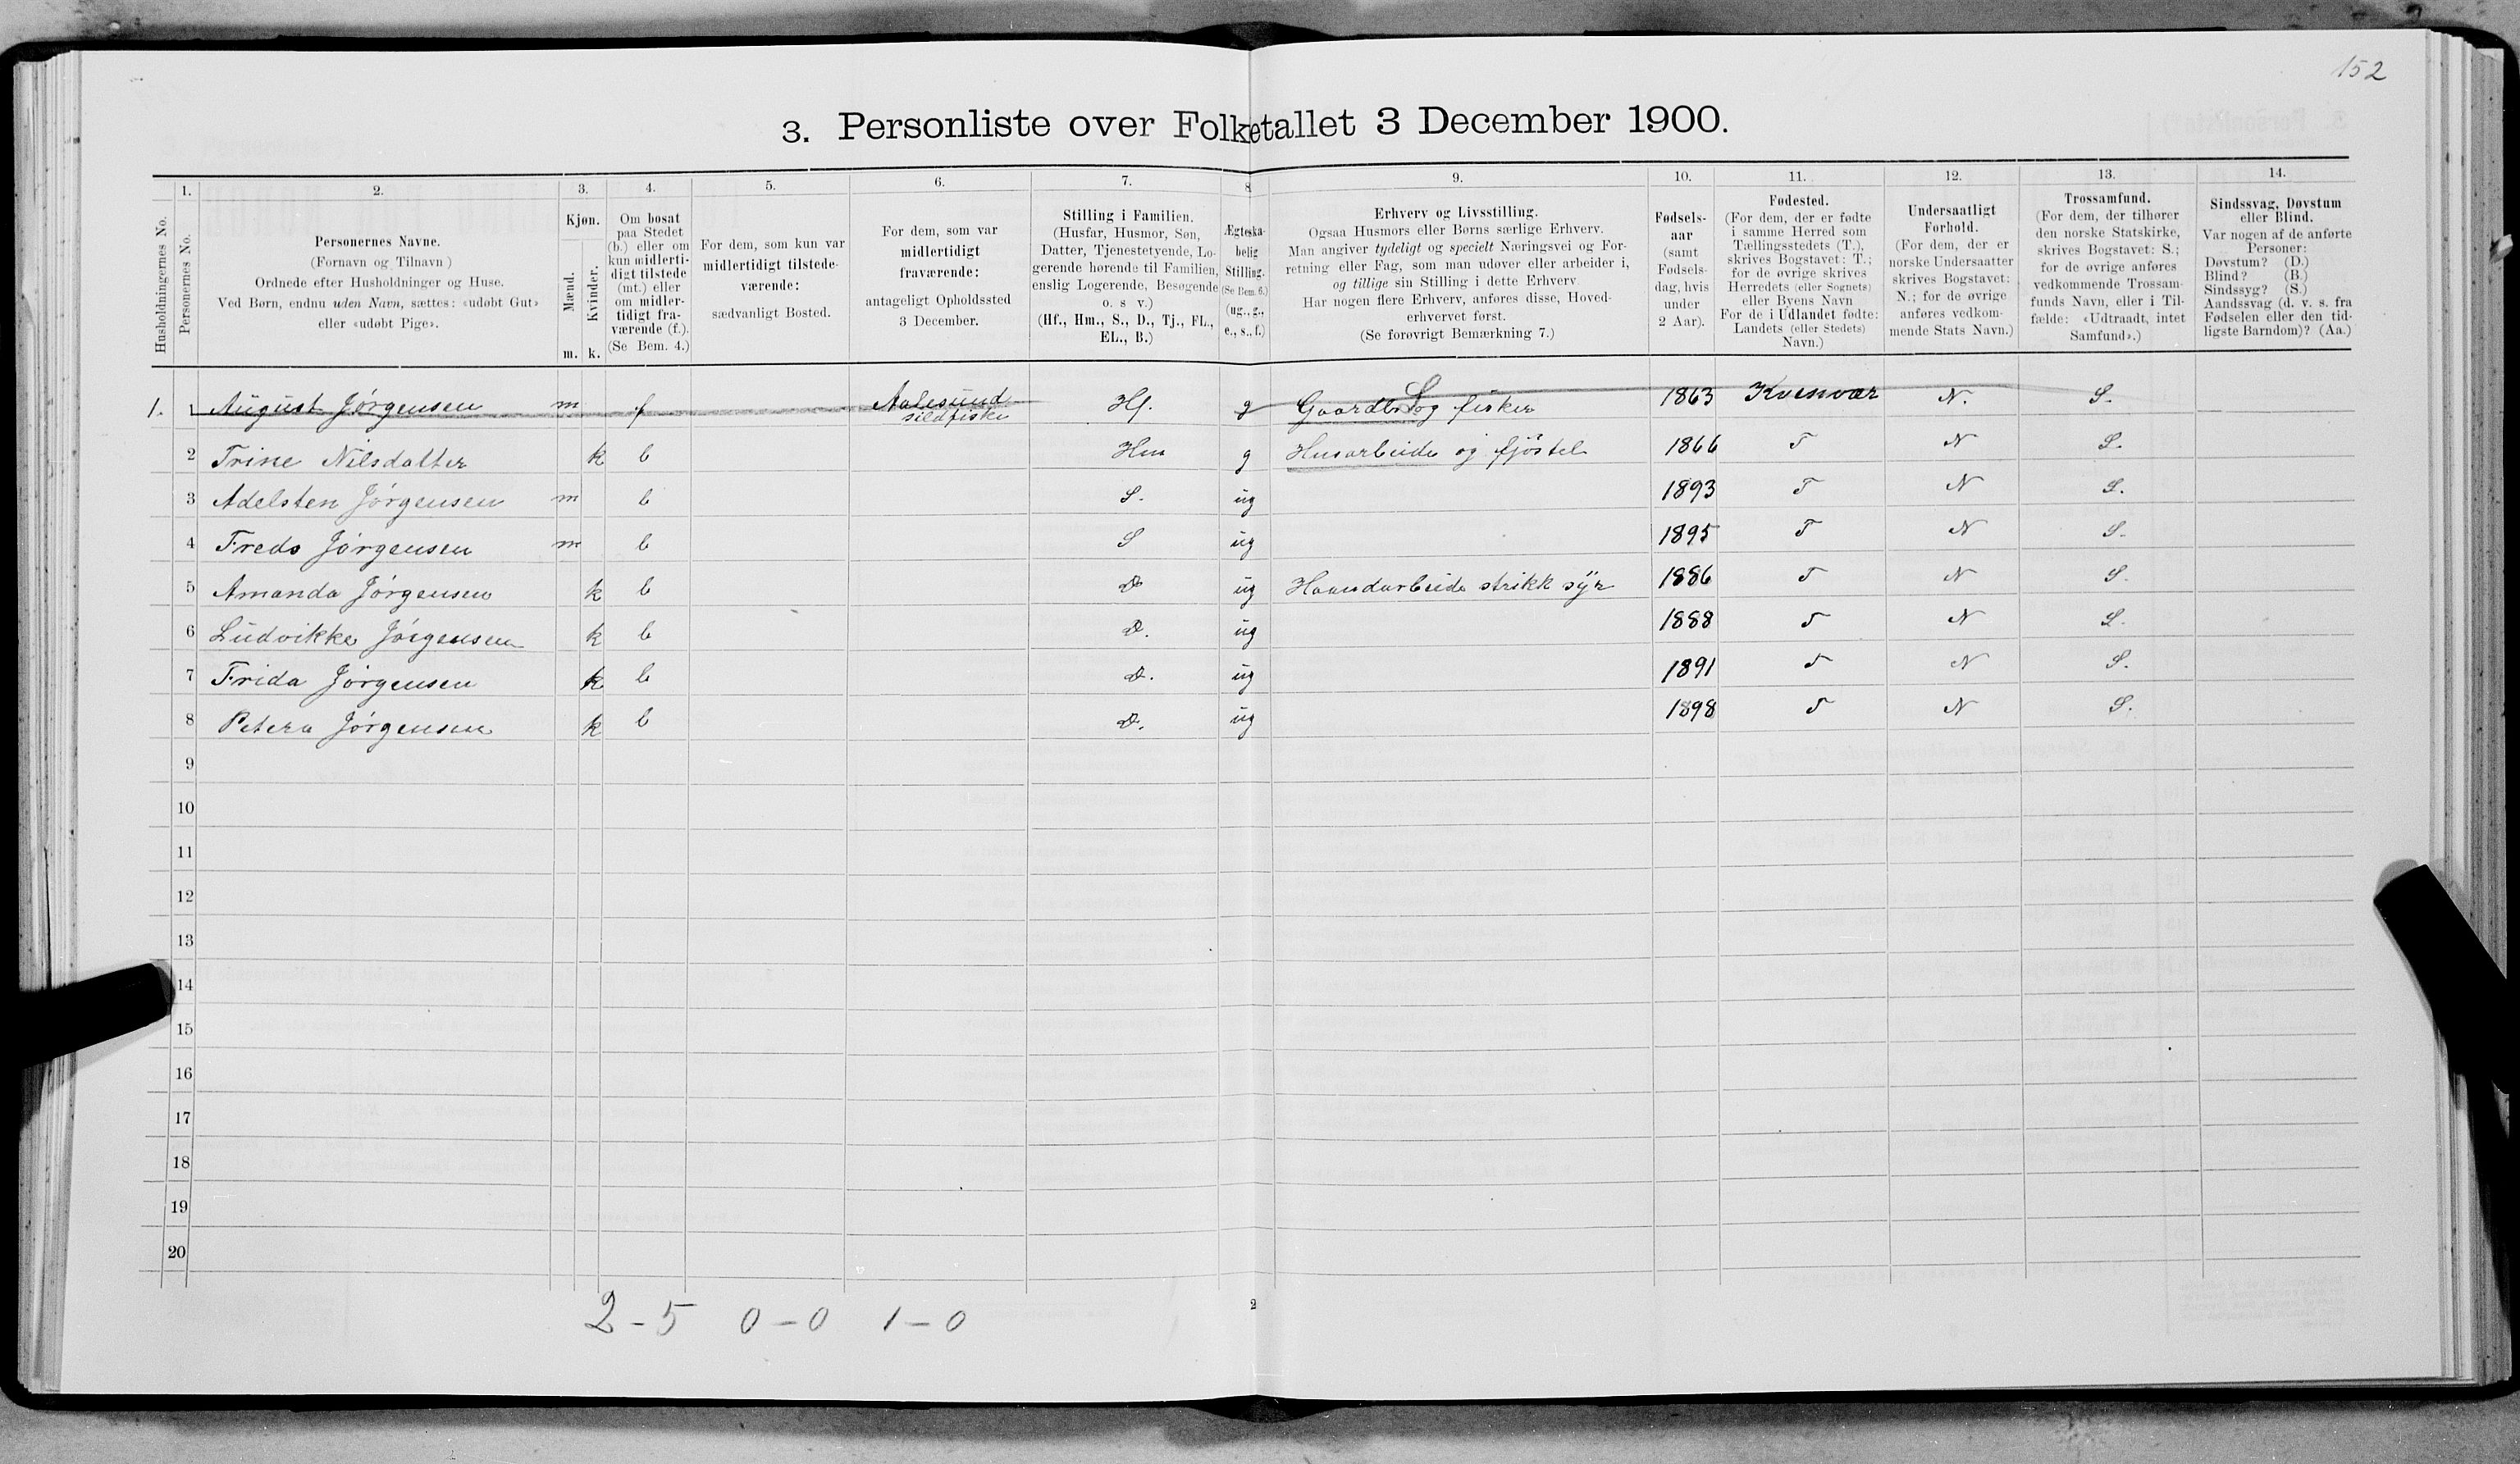 152
3. Personliste over Folketallet 3 December 1900.
Husholdningernes No.
1.
Personernes No.
2.
Personernes Navne.
(Fornavn og Tilnavn)
Ordnede efter Husholdninger og Huse.
Ved Børn, endnu uden Navn, sættes: «udøbt Gut»
eller «udøbt Pige».
3.
Kjøn.
Mænd.
Kvinder.
m. k.
4.
Om bosat
paa Stedet
(b.) eller om
kun midlerti-
digt tilstede
(mt.) eller
om midler-
tidigt fra-
værende (f.).
(Se Bem. 4.)
5.
For dem, som kun var
midlertidigt tilstede-
værende:
sædvanligt Bosted.
6.
For dem, som var
midlertidigt
fraværende:
antageligt Opholdssted
3 December.
7.
Stilling i Familien.
(Husfar, Husmor, Søn,
Datter, Tjenestetyende, Lo-
gerende hørende til Familien,
enslig Logerende, Besøgende
o. s v.)
(Hf., Hm., S., D., Tj., FL.,
EL., B.)
8
Ægteska-
belig
Stilling.
(Se Bem. 6.)
(ug., g.,
e., s., f.)
9.
Erhverv og Livsstilling.
Ogsaa Husmors eller Børns særlige Erhverv.
Man angiver tydeligt og specielt Næringsvei og For-
retning eller Fag, som man udøver eller arbeider i,
og tillige sin Stilling i dette Erhverv
Har nogen flere Erhverv, anføres disse, Hoved-
erhvervet først.
(Se forøvrigt Bemærkning 7.)
10.
Fødsels-
aar
(samt
Fødsels-
dag, hvis
under
2 Aar).
11.
Fødested.
(For dem, der er fødte
i samme Herred som
Tællingsstedets (T.),
skrives Bogstavet: T.;
for de øvrige skrives
Herredets (eller Sognets)
eller Byens Navn
For de i Udlandet fødte:
Landets (eller Stedets)
Navn.)
12.
Undersaatligt
Forhold.
(For dem, der er
norske Undersaatter
skrives Bogstavet:
N.; for de øvrige
anføres vedkom-
mende Stats Navn.)
13.
Trossamfund.
(For dem, der tilhører
den norske Statskirke,
skrives Bogstavet: S.;
for de øvrige anføres
vedkommende Trossam-
funds Navn, eller i Til-
fælde: «Udtraadt, intet
Samfund».)
14.
Sindssvag, Døvstum
eller Blind.
Var nogen af de anførte
Personer:
Døvstum? (D.)
Blind? (B.)
Sindssyg? (S.)
Aandssvag (d. v. s. fra
Fødselen eller den tid-
ligste Barndom)? (Aa.)
1. 1 August Jørgensen m f Aalesund sildfiske Hf. g Gaardbr S og fisker 1863 Kvenvær N. S.
2 Trine Nilsdatter k b Hm g Husarbeide og fjøstel 1866 T N S.
3 Adelsten Jørgensen m b S. ug 1893 T N S.
4 Fredo Jørgensen m b S ug 1895 T N S.
5 Amanda Jørgensen k b D ug Haandarbeide strikk syr 1886 T N S.
6 Ludvikke Jørgensen k b D. ug 1888 T N S.
7 Frida Jørgensen k b D. ug 1891 T N S.
8 Petera Jørgensen k b D. ug 1898 T N S.
9
10
11
12
13
14
15
16
17
18
19
20
2
2-5 0-0 1-0